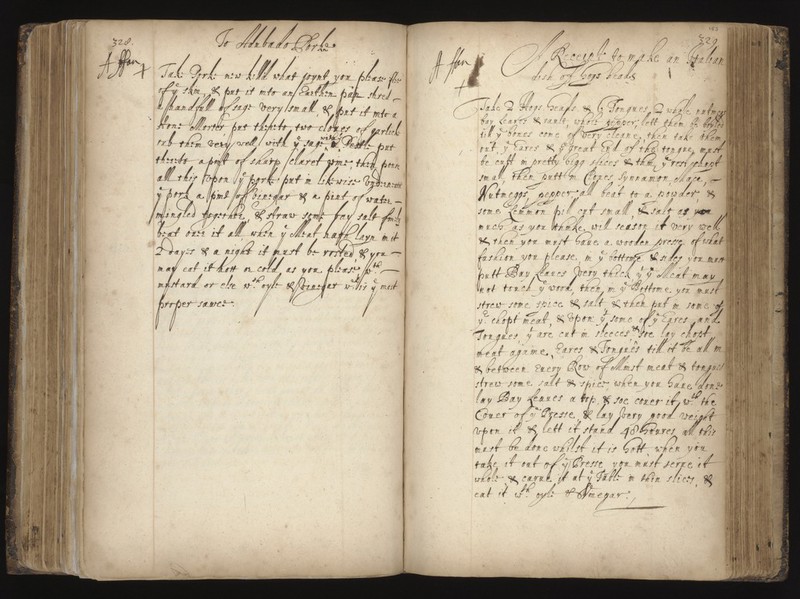 328.
To Adubado Porke
A ffan
Take Porke new kill'd what joynt you please flea
of yᵉ skin, & put it into an Earthen pan shred
a handfull of sage very small, & put it into a
stone Morter put thereto, two cloves of garlick
rub them very well with yᵉ sage, put
thereto a pint of sharp claret wine, then poure
all this upon yᵉ porke put in likewise upon
yᵉ pork a pint of vinegar & a pint of water
mingled together, & straw some bay salt finely
beat over it all when yᵉ Meat hath layn in it
2 dayes & a night it must be rosted & you
may eat it hott or cold, as you please, wᵗʰ
mustard or else wᵗʰ oyle & Vinegar wᶜʰ is yᵉ most
proper sawce.
329
A ffan
A Receipt to make an Italian
dish of hogs heads
Take 2 Hogs heads & 6 Tongues, 2 whole nutmegs
bay leaves & sault, whole pepper, lett them be boyled
til yᵉ bones come of very cleane, then take them
out, yᵉ Eares & yᵉ great End of the tongue must
be cutt in pretty bigg slices & then yᵉ rest chopt
small, then putt in Cloves, Synnamon, Mace,
Nutmegs pepper, all beat to a powder, &
some Lemmon pill cut small, & salt as
much as you thinke will season it very well
& then you must have a wooden presse of what
fashion you please, in yᵉ bottome & sides you must
putt Bay Leaves very thick yᵗ yᵉ Meat may
not touch yᵉ wood, then in yᵉ Bottome you must
strew some spice & salt & then put in some of
yᵉ chopt meat, & upon yᵗ some of yᵉ Eares, and
Tongues, yᵗ are cut in sleeces & soe lay chopt
meat againe, Eares & Tongues till it be all in
& between Every Row of Minst meat & tongues
strew some salt & spice, when you have done
lay Bay Leaves a top, & soe cover it, wᵗʰ the
Cover of yᵉ Presse, & lay very good weight
upon it & lett it stand 48 houres, all this
must be done whilst it is hott when you
take it out of yᵉ Presse you must serve it
whole & carve it at yᵉ Table in thin slices, &
eat it wᵗʰ oyle & Vinegar.